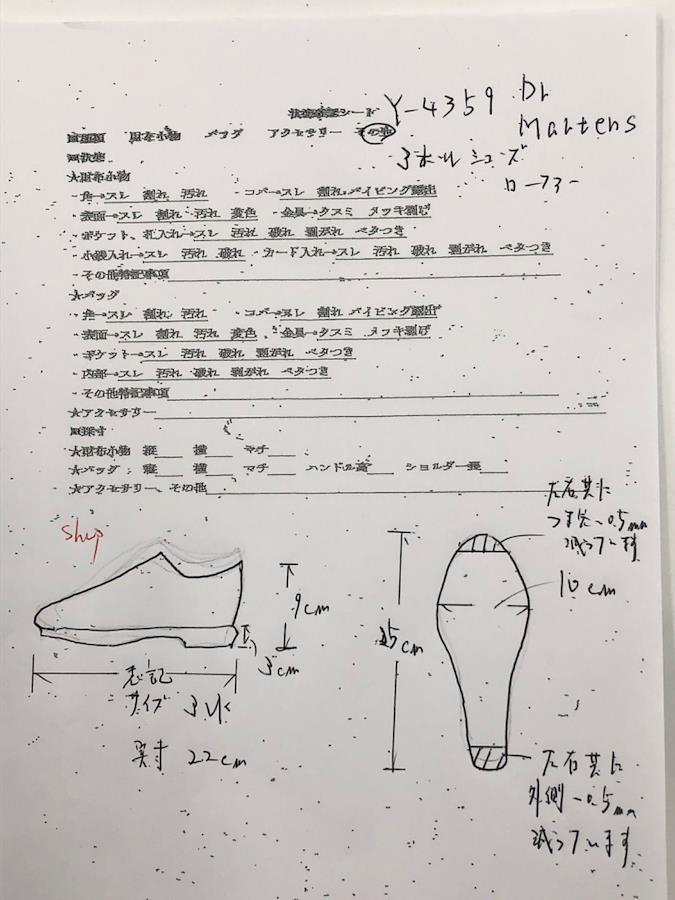 状態確認シート
Y-4359 Dr
Martens
3ホールシューズ
ローファー
財布小物 バッグ アクセサリー その他
★財布小物
・角→スレ 割れ 汚れ ・コバ→スレ 割れ パイピング露出
・表面→スレ 割れ 汚れ 変色 ・金具→クスミ メッキ剥げ
・ポケット、札入れ→スレ 汚れ 破れ 剥がれ ベタつき
・小銭入れ→スレ 汚れ 破れ ・カード入れ→スレ 汚れ 破れ 剥がれ ベタつき
・その他特記事項
★バッグ
・角→スレ 割れ 汚れ ・コバ→スレ 割れ パイピング露出
・表面→スレ 割れ 汚れ 変色 ・金具→クスミ メッキ剥げ
・ポケット→スレ 汚れ 破れ 剥がれ ベタつき
・内部→スレ 汚れ 破れ 剥がれ ベタつき
・その他特記事項
★アクセサリー
★財布小物 縦 横 マチ
★バッグ 縦 横 マチ ハンドル高 ショルダー長
★アクセサリー、その他
左右共に
つま先〜0.5mm
減っています
9cm
3cm
表記
サイズ 3UK
実寸 22cm
10cm
25cm
左右共に
外側〜0.5mm
減っています